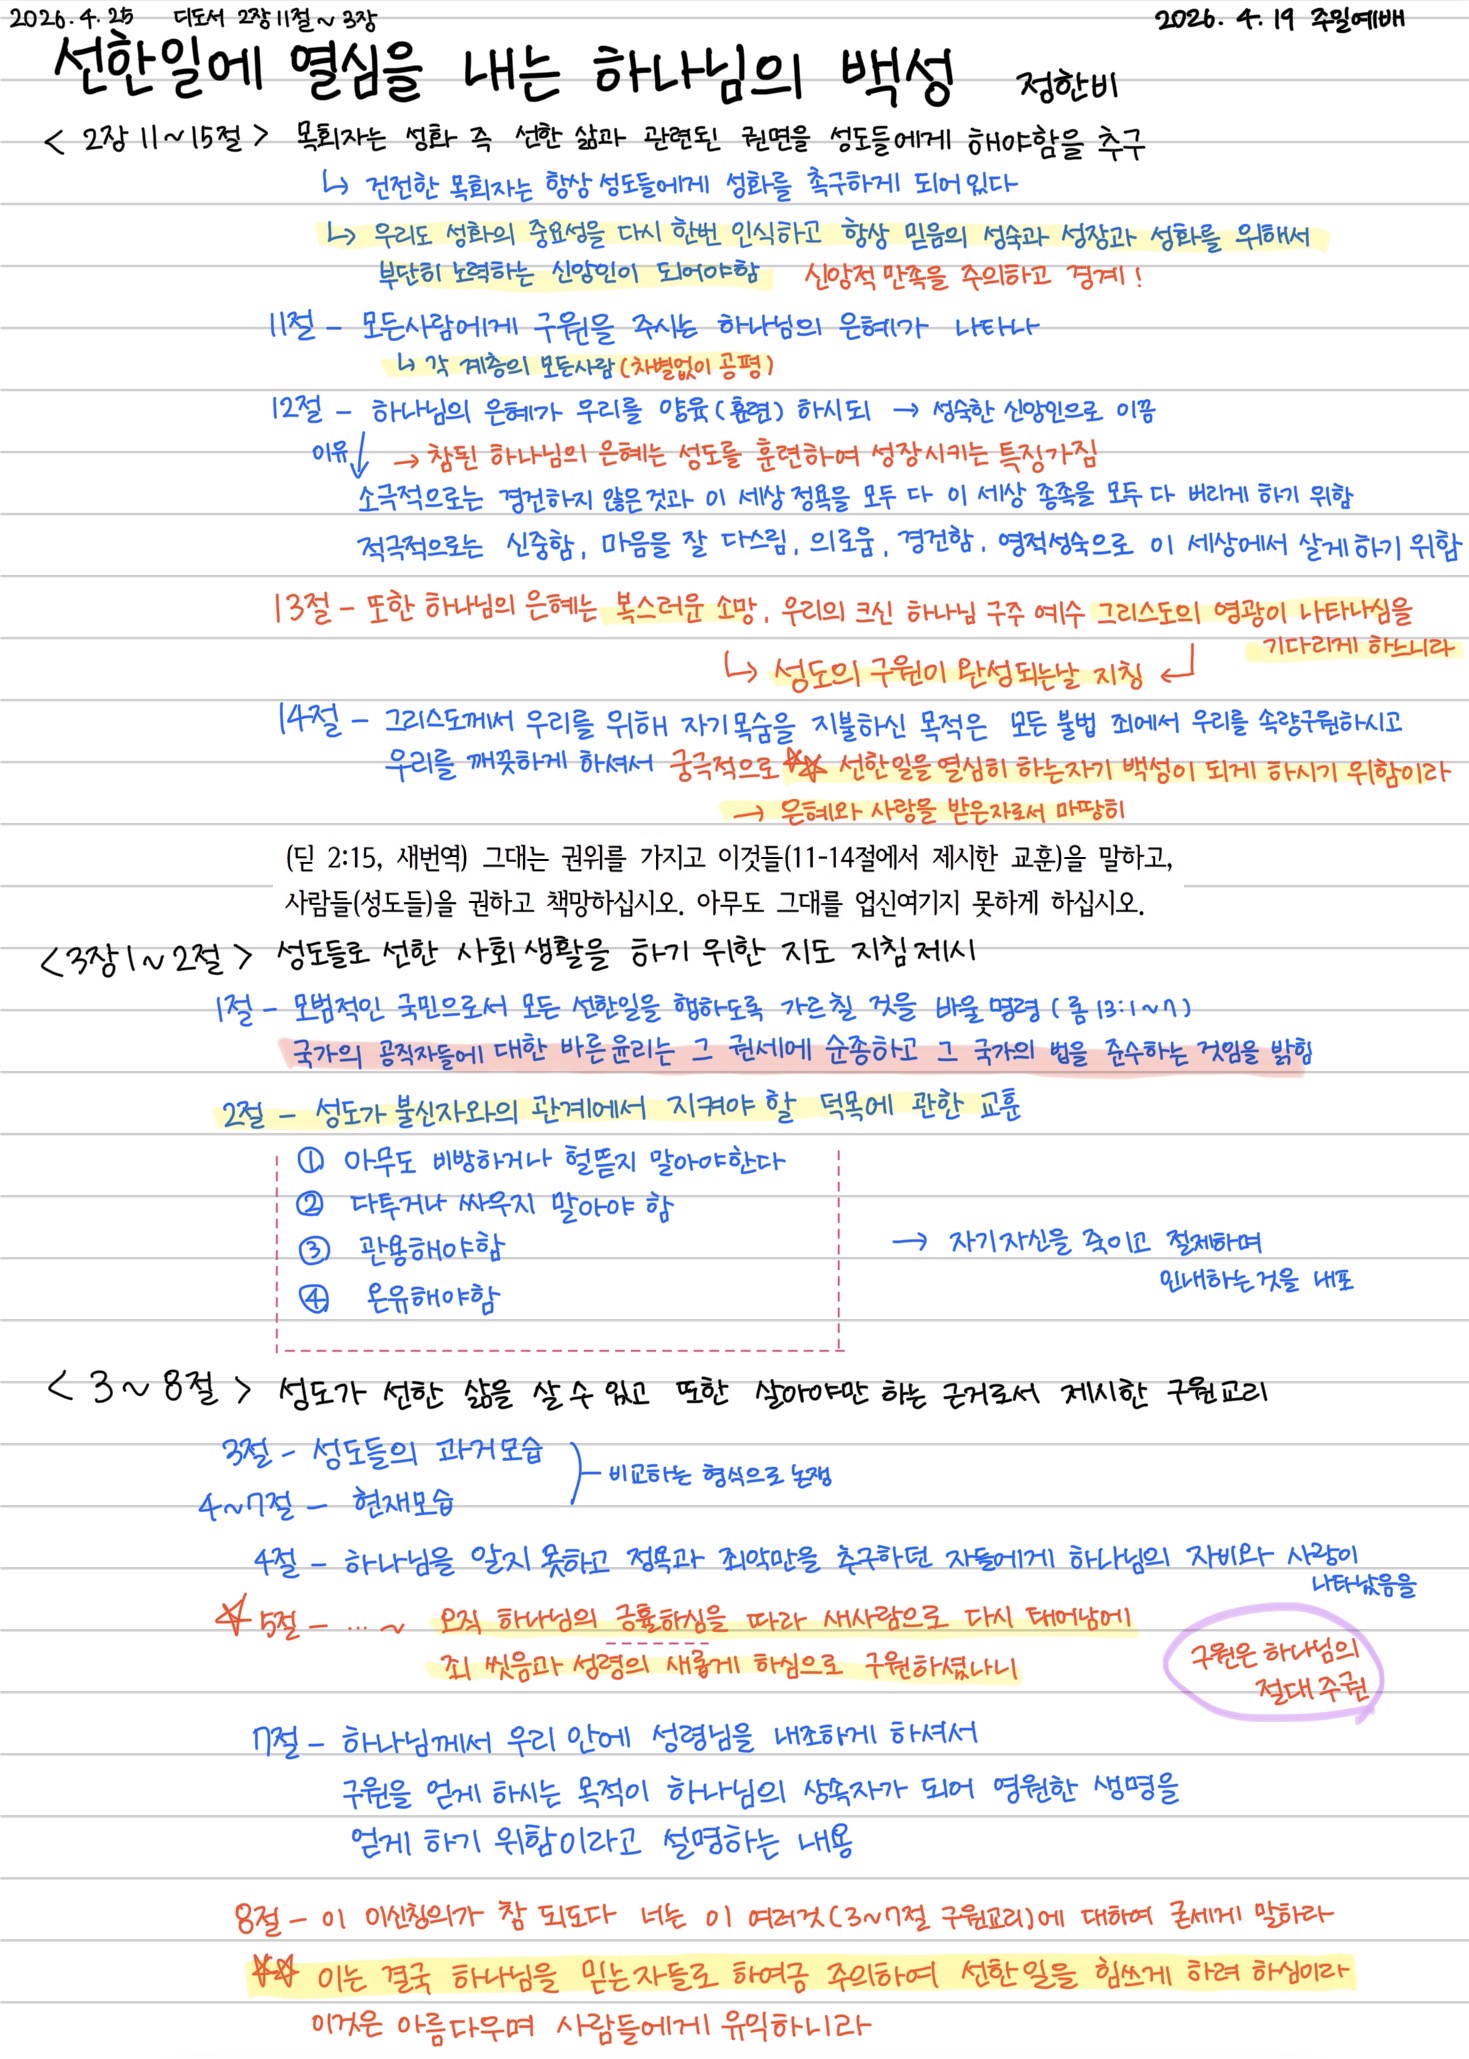 2026.4.25 디도서 2장11절~3장
2026.4.19 주일예배
선한일에 열심을 내는 하나님의 백성 정한비
<2장 11~15절> 목회자는 성화 즉 선한 삶과 관련된 권면을 성도들에게 해야함을 추구
↳ 건전한 목회자는 항상 성도들에게 성화를 촉구하게 되어있다
↳ 우리도 성화의 중요성을 다시 한번 인식하고 항상 믿음의 성숙과 성장과 성화를 위해서
부단히 노력하는 신앙인이 되어야함 신앙적 만족을 주의하고 경계!
11절 - 모든사람에게 구원을 주시는 하나님의 은혜가 나타나
↳ 각 계층의 모든사람(차별없이 공평)
12절 - 하나님의 은혜가 우리를 양육(훈련) 하시되 → 성숙한 신앙인으로 이끔
이유↓ → 참된 하나님의 은혜는 성도를 훈련하여 성장시키는 특징가짐
소극적으로는 경건하지 않은것과 이 세상 정욕을 모두 다 이 세상 종족을 모두 다 버리게 하기 위함
적극적으로는 신중함, 마음을 잘 다스림, 의로움, 경건함, 영적성숙으로 이 세상에서 살게하기 위함
13절 - 또한 하나님의 은혜는 복스러운 소망, 우리의 크신 하나님 구주 예수 그리스도의 영광이 나타나심을
기다리게 하느니라
↳ 성도의 구원이 완성되는날 지칭 ↵
14절 - 그리스도께서 우리를 위해 자기목숨을 지불하신 목적은 모든 불법 죄에서 우리를 속량구원하시고
우리를 깨끗하게 하셔서 궁극적으로 ☆☆ 선한일을 열심히 하는자기 백성이 되게 하시기 위함이라
→ 은혜와 사랑을 받은자로서 마땅히
(딛 2:15, 새번역) 그대는 권위를 가지고 이것들(11-14절에서 제시한 교훈)을 말하고,
사람들(성도들)을 권하고 책망하십시오. 아무도 그대를 업신여기지 못하게 하십시오.
<3장 1~2절> 성도들로 선한 사회생활을 하기 위한 지도 지침제시
1절 - 모범적인 국민으로서 모든 선한일을 행하도록 가르칠 것을 바울 명령 (롬 13:1~7)
국가의 공직자들에 대한 바른윤리는 그 권세에 순종하고 그 국가의 법을 준수하는 것임을 밝힘
2절 - 성도가 불신자와의 관계에서 지켜야 할 덕목에 관한 교훈
① 아무도 비방하거나 헐뜯지 말아야한다
② 다투거나 싸우지 말아야 함
③ 관용해야함
④ 온유해야함
→ 자기자신을 죽이고 절제하며
인내하는것을 내포
<3~8절> 성도가 선한 삶을 살 수 있고 또한 살아야만 하는 근거로서 제시한 구원교리
3절 - 성도들의 과거모습
4~7절 - 현재모습
비교하는 형식으로 논쟁
4절 - 하나님을 알지 못하고 정욕과 죄악만을 추구하던 자들에게 하나님의 자비와 사랑이
나타났음을
☆ 5절 - … ~ 오직 하나님의 긍휼하심을 따라 새사람으로 다시 태어남에
죄 씻음과 성령의 새롭게 하심으로 구원하셨나니
구원은 하나님의
절대 주권
7절 - 하나님께서 우리 안에 성령님을 내조하게 하셔서
구원을 얻게 하시는 목적이 하나님의 상속자가 되어 영원한 생명을
얻게 하기 위함이라고 설명하는 내용
8절 - 이 이신칭의가 참 되도다 너는 이 여러것(3~7절 구원교리)에 대하여 굳세게 말하라
☆☆ 이는 결국 하나님을 믿는자들로 하여금 주의하여 선한일을 힘쓰게 하려 하심이라
이것은 아름다우며 사람들에게 유익하니라